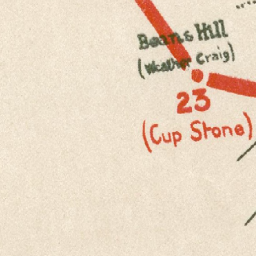 Beans Hill
(Weather Craig)
23
(Cup Stone)